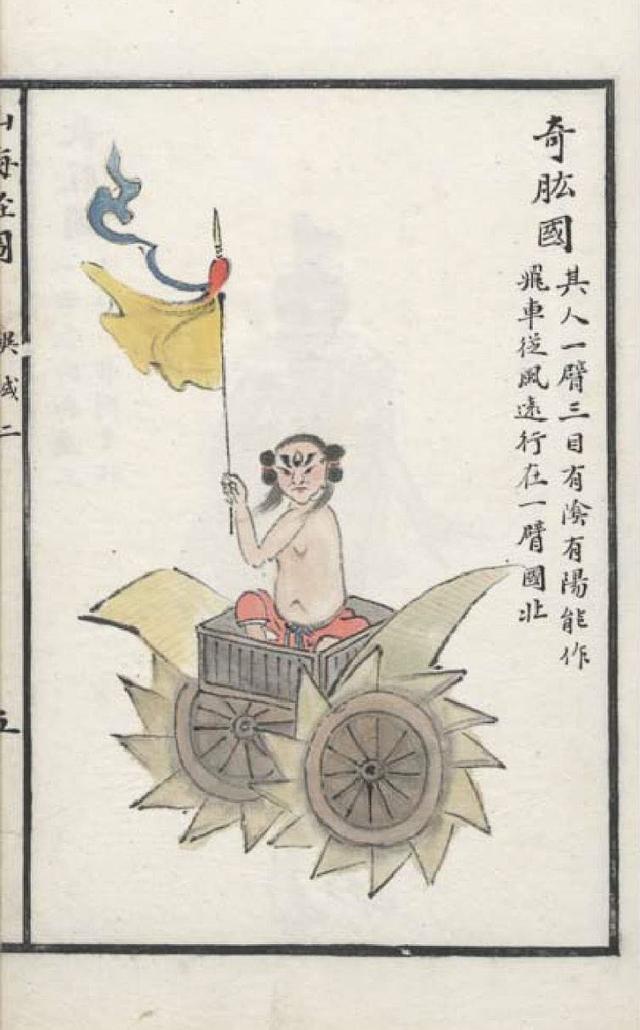 奇肱國
其人一臂三目有陰有陽能作
飛車從風遠行在一臂國北
山海經圖 異域二
五